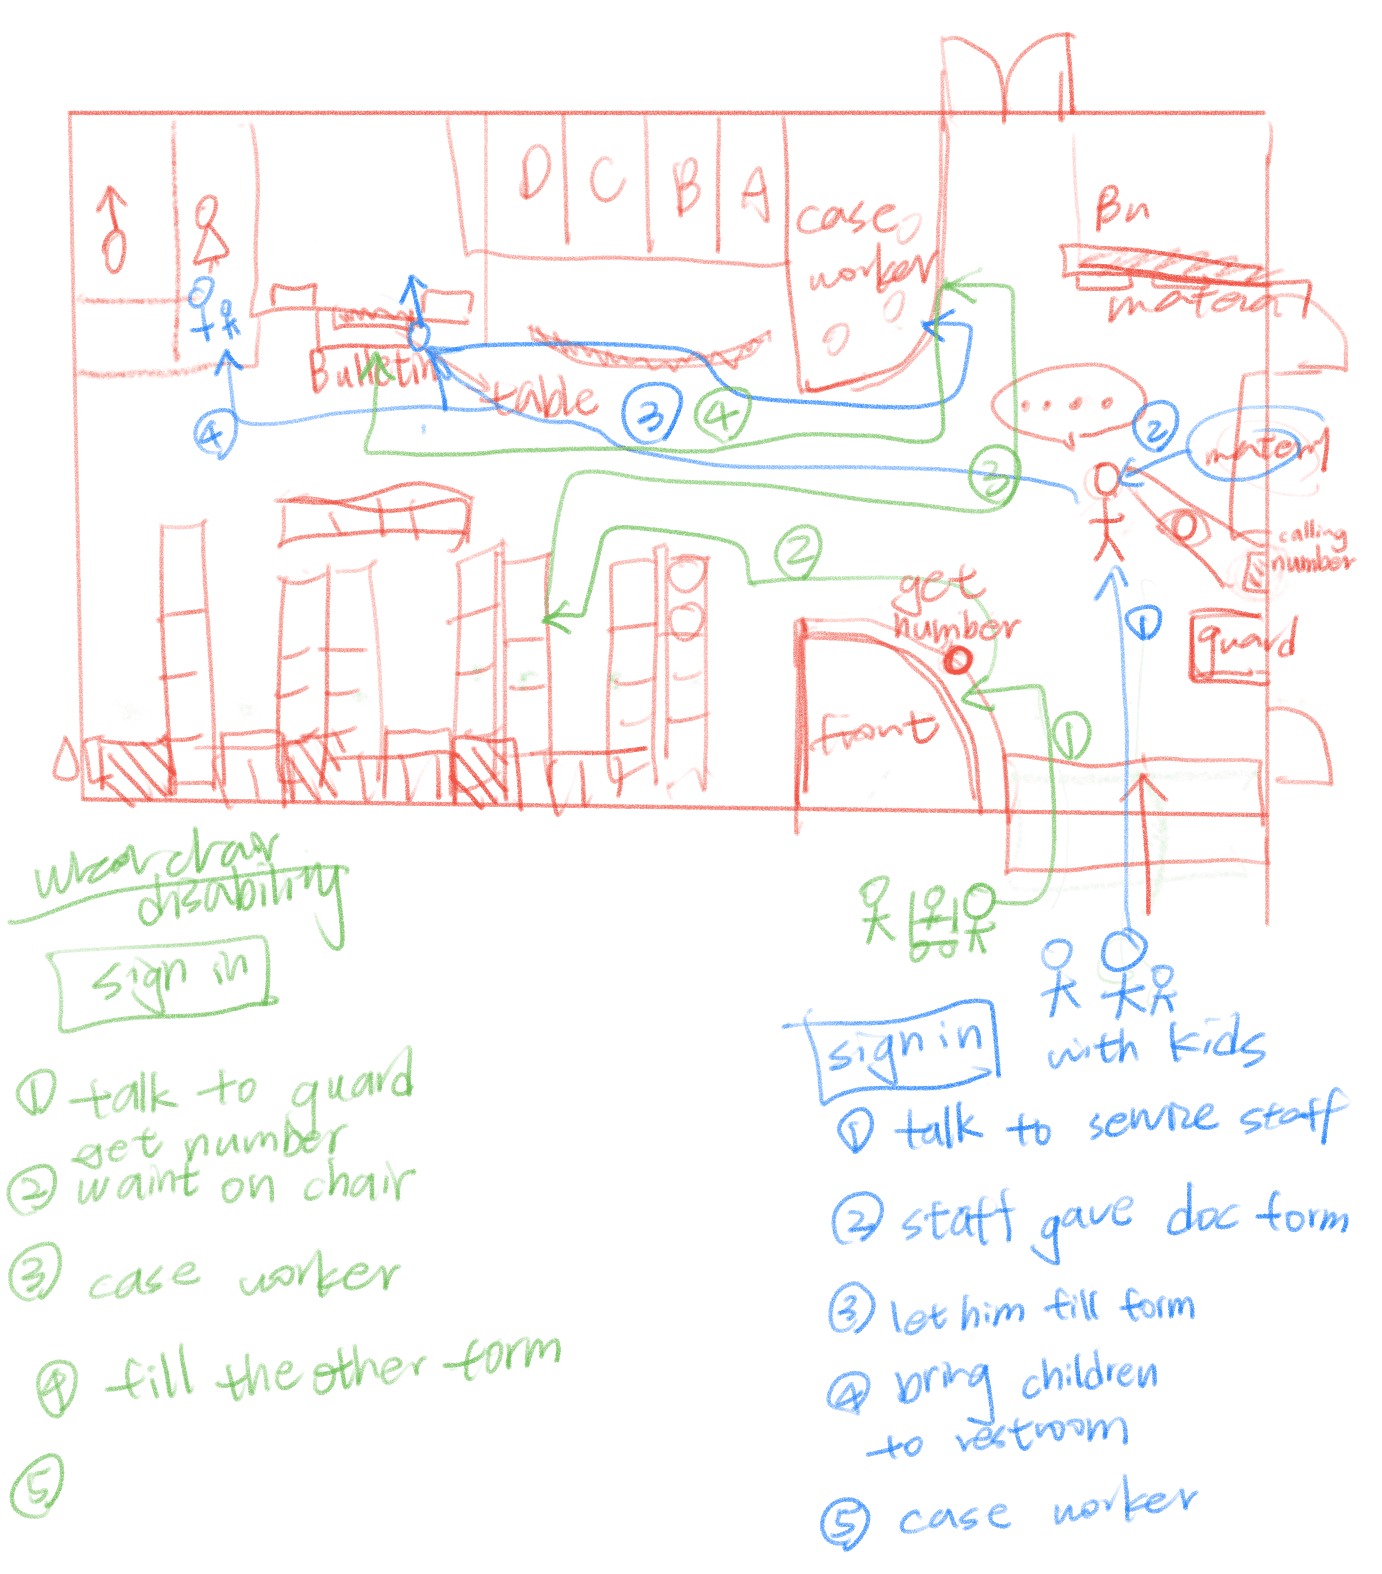 D C B A
case
worker
Bn
materal
Bulletin
table
3
4
4
3
2
materl
calling
number
2
get
number
1
guard
front
1
wheelchair
disability
sign in
① talk to guard
get number
② waint on chair
③ case worker
④ fill the other form
⑤
sign in
with kids
① talk to service staff
② staff gave doc form
③ let him fill form
④ bring children
to restroom
⑤ case worker